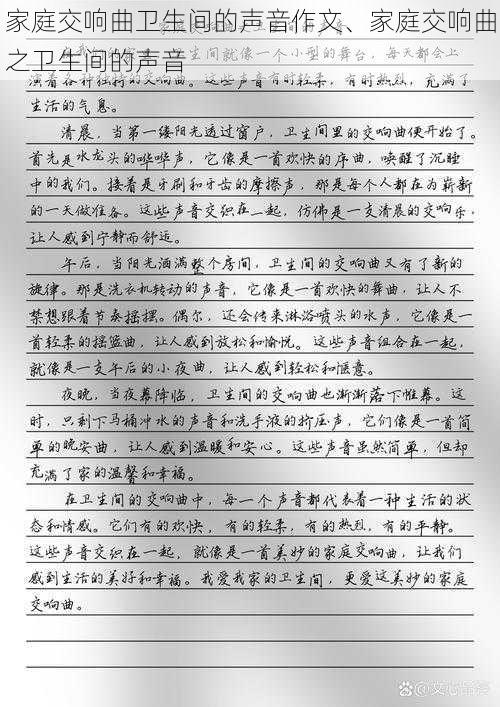 家庭交响曲卫生间的声音作文、家庭交响曲
之卫生间的声音
生间就像一个小型的舞台，每天都会上
演着各种独特的交响曲。这些声音有时轻柔，有时热烈，充满了
生活的气息。
清晨，当第一缕阳光透过窗户，卫生间里的交响曲便开始了。
首先是水龙头的哗哗声，它像是一首欢快的序曲，唤醒了沉睡
中的我们。接着是牙刷和牙齿的摩擦声，那是每个人都在为崭新
的一天做准备。这些声音交织在一起，仿佛是一支清晨的交响乐，
让人感到宁静而舒适。
午后，当阳光洒满整个房间，卫生间的交响曲又有了新的
旋律。那是洗衣机转动的声音，它像是一首欢快的舞曲，让人不
禁想跟着节奏摇摆。偶尔，还会传来淋浴喷头的水声，它像是一
首轻柔的摇篮曲，让人感到放松和愉悦。这些声音组合在一起，
就像是一支午后的小夜曲，让人感到轻松和惬意。
夜晚，当夜幕降临，卫生间的交响曲也渐渐落下帷幕。这
时，只剩下马桶冲水的声音和洗手液的挤压声，它们像是一首简
单的晚安曲，让人感到温暖和安心。这些声音虽然简单，但却
充满了家的温馨和幸福。
在卫生间的交响曲中，每一个声音都代表着一种生活的状
态和情感。它们有的欢快，有的轻柔，有的热烈，有的平静。
这些声音交织在一起，就像是一首美妙的家庭交响曲，让我们
感到生活的美好和幸福。我爱我家的卫生间，更爱这美妙的家庭
交响曲。